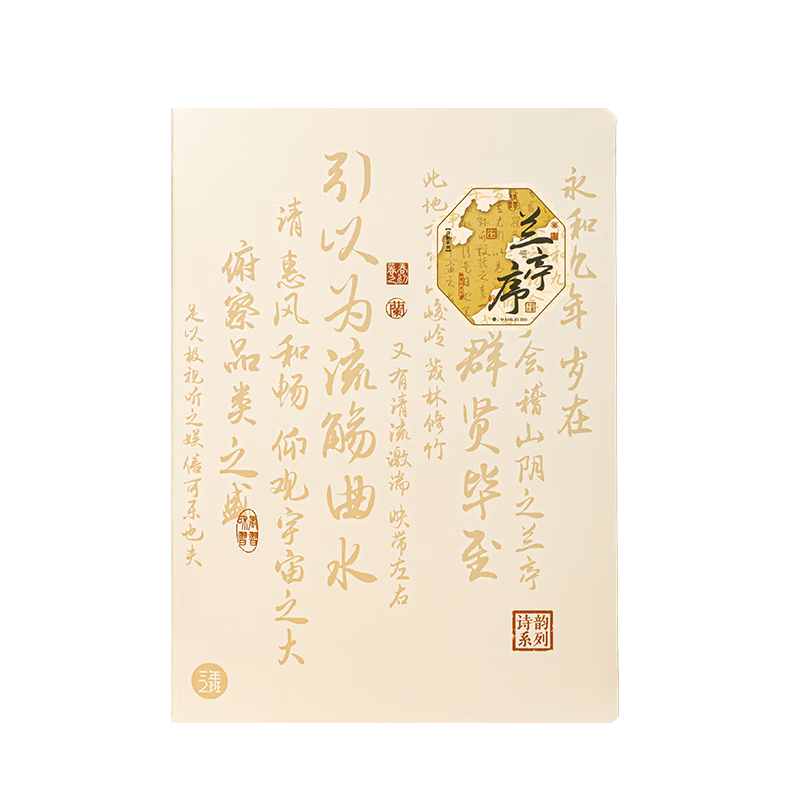 永和九年 岁在
会稽山阴之兰亭
群贤毕至
兰亭序
此地
峻岭 茂林修竹
又有清流激湍 映带左右
蘭
引以为流觞曲水
请惠风和畅 仰观宇宙之大
俯察品类之盛
足以极视听之娱 信可乐也夫
诗韵
系列
三年
2班